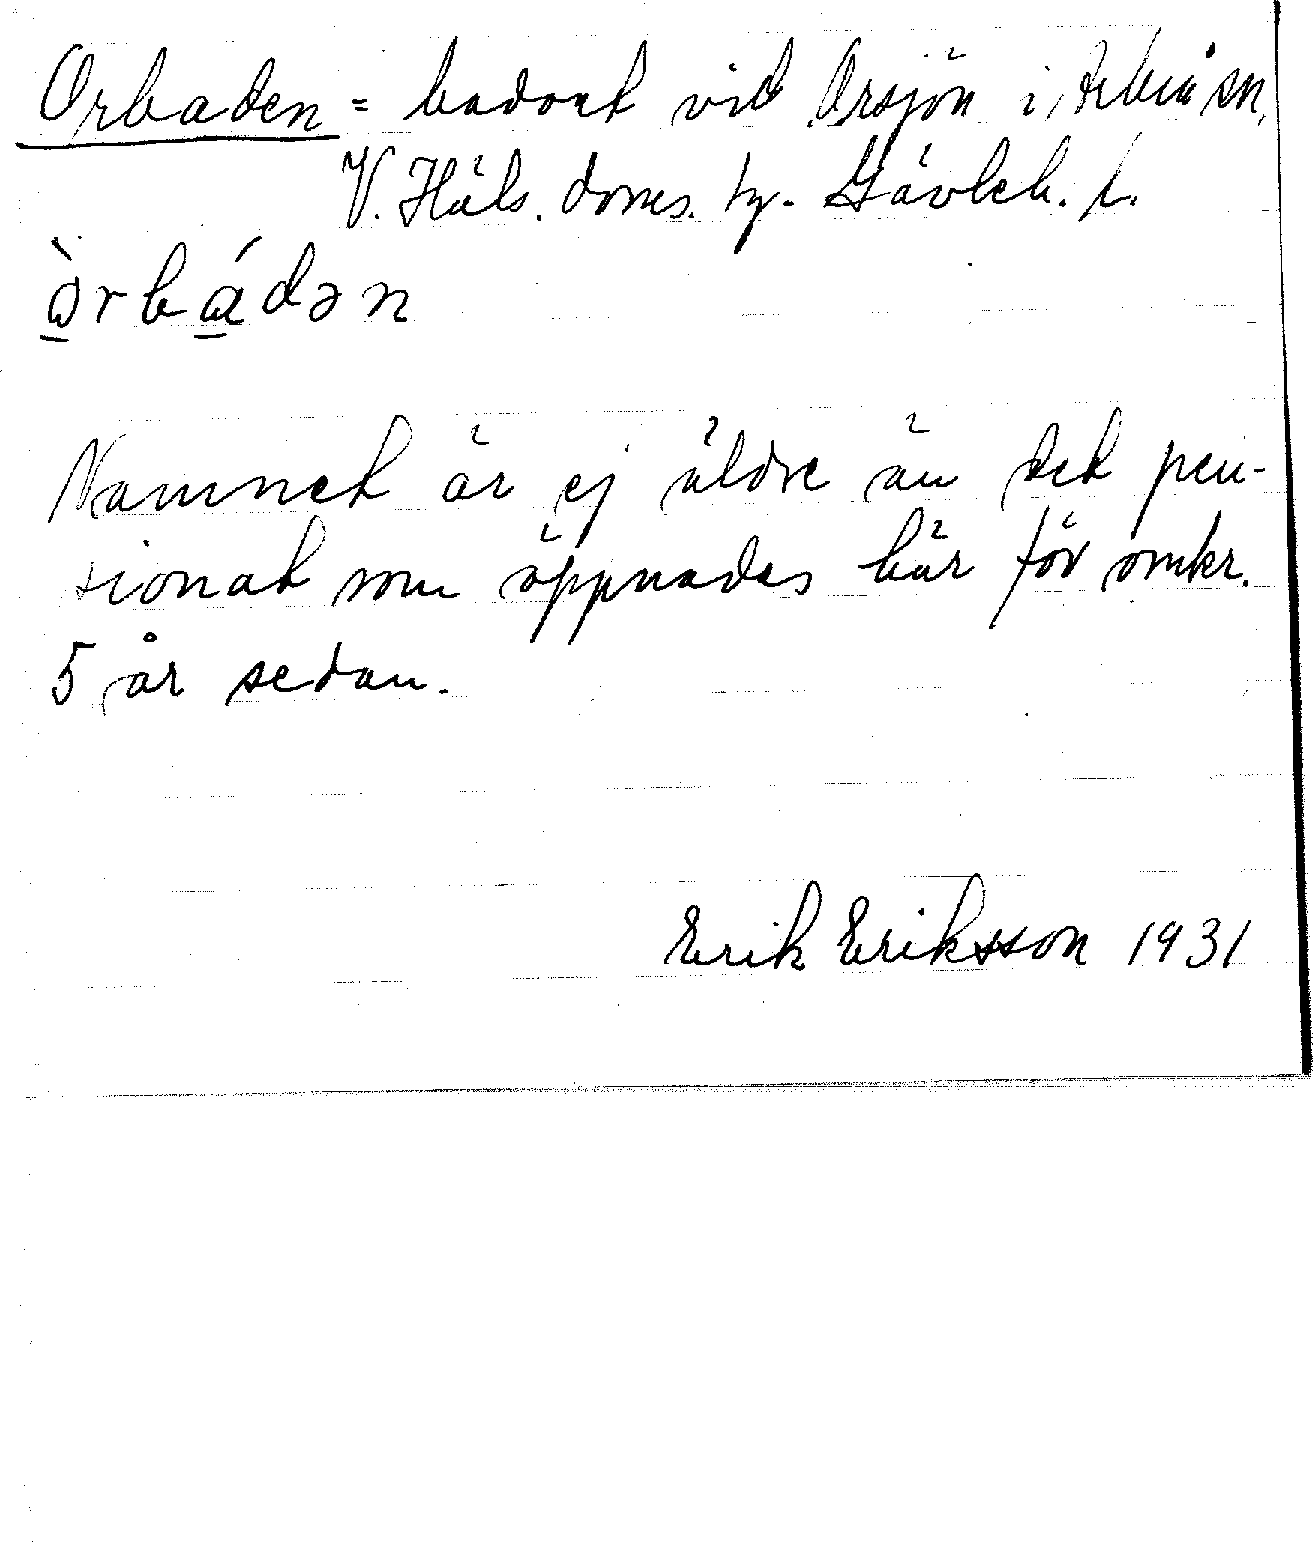 Orbaden = badort vid Orsjön i Arbrå sn,
V. Häls. doms. hg. Gävleb. l.
ò̱rbá̱dən
Namnet är ej äldre än det pen-
sionat som öppnades här för omkr.
5 år sedan.
Erik Eriksson 1931